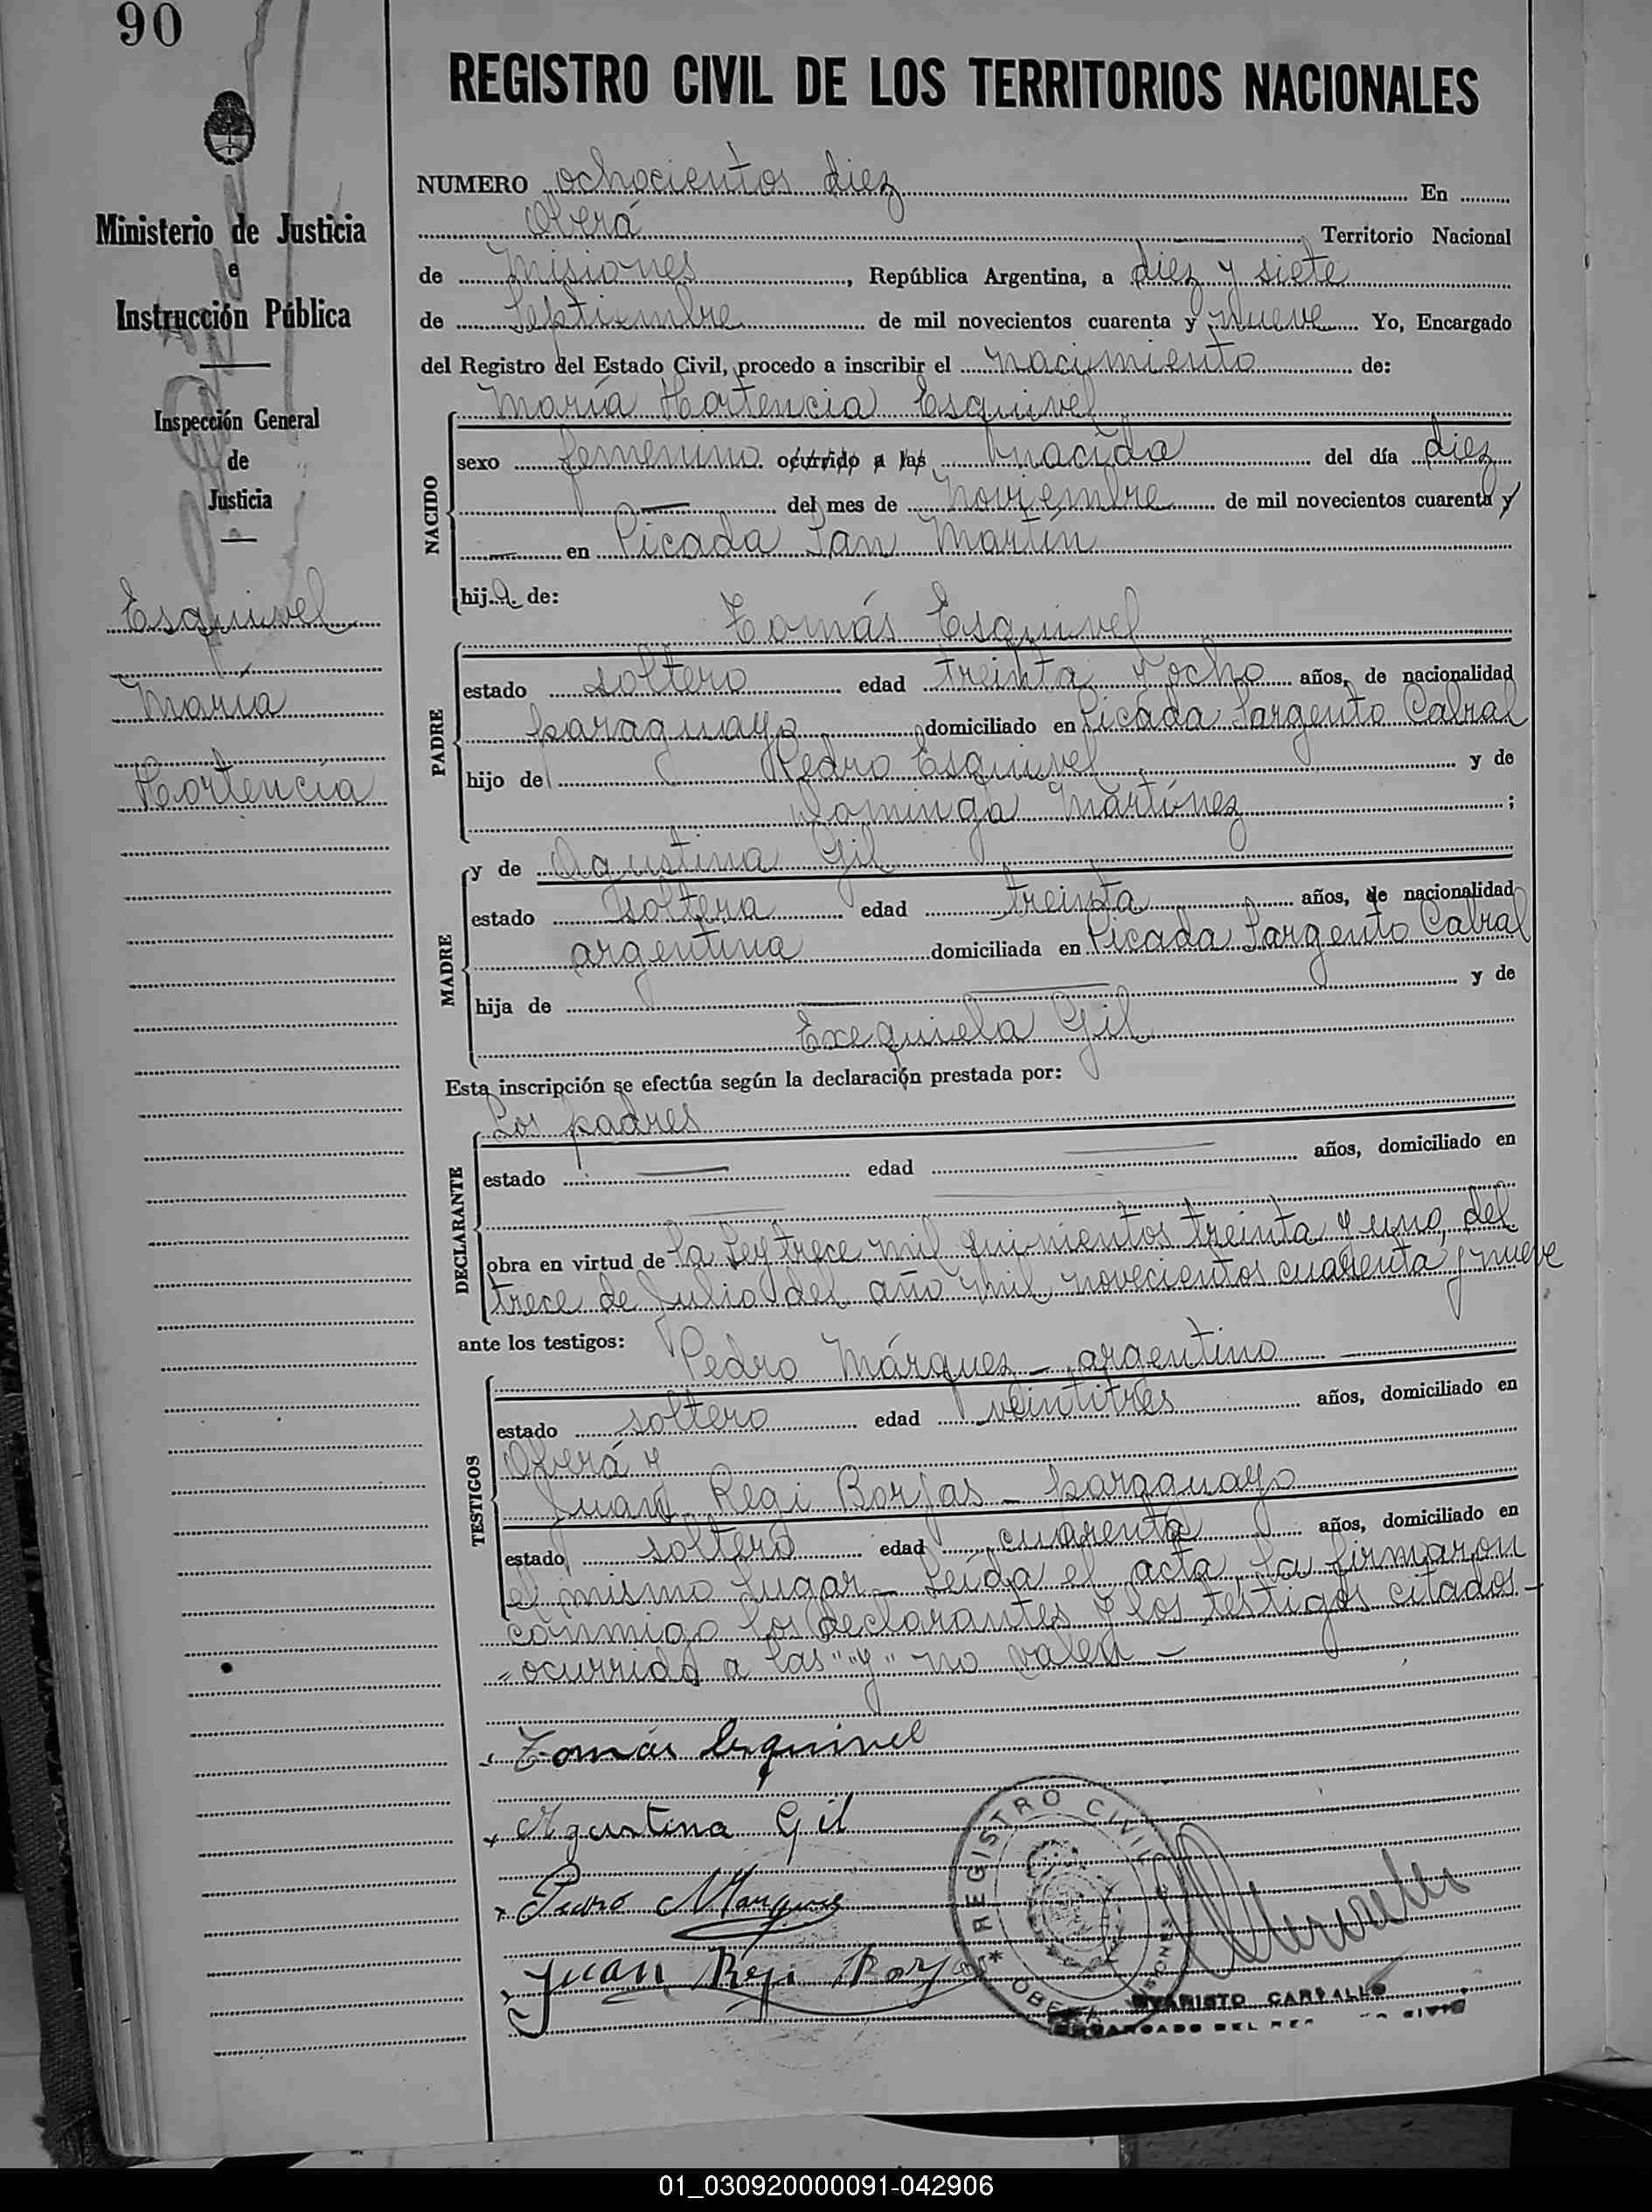 90
REGISTRO CIVIL DE LOS TERRITORIOS NACIONALES
Ministerio de Justicia
e
Instrucción Pública
Inspección General
de
Justicia
Esquivel
María
Hortencia
NUMERO ochocientos diez En
Oberá Territorio Nacional
de Misiones, República Argentina, a diez y siete
de Septiembre de mil novecientos cuarenta y nueve Yo, Encargado
del Registro del Estado Civil, procedo a inscribir el nacimiento de:
María Hortencia Esquivel
NACIDO
sexo femenino ocurrido a las nacida del día diez
del mes de noviembre de mil novecientos cuarenta y
en Picada San Martín
hija de:
Tomás Esquivel
PADRE
estado soltero edad treinta y ocho años, de nacionalidad
paraguayo domiciliado en Picada Sargento Cabral
hijo de Pedro Esquivel y de
Dominga Martínez ;
y de Agustina Gil
MADRE
estado soltera edad treinta años, de nacionalidad
argentina domiciliada en Picada Sargento Cabral
hija de y de
Exequiela Gil
Esta inscripción se efectúa según la declaración prestada por:
Los padres
DECLARANTE
estado edad años, domiciliado en
obra en virtud de la Ley trece mil quinientos treinta y uno, del
trece de Julio del año mil novecientos cuarenta y nueve
ante los testigos:
Pedro Márquez - argentino
TESTIGOS
estado soltero edad veintitres años, domiciliado en
Oberá y
Juan Regi Borjas - paraguayo
estado soltero edad cuarenta años, domiciliado en
el mismo lugar - Leída el acta, la firmaron
conmigo los declarantes y los testigos citados -
= ocurrido a las " "y" no valen -
Tomás Esquivel
Agustina Gil
Pedro Marquez
Juan Regi Borjas
REGISTRO CIVIL
OBERÁ MISIONES
EVARISTO CARVALLO
ENCARGADO DEL REG CIVIL
01_030920000091-042906